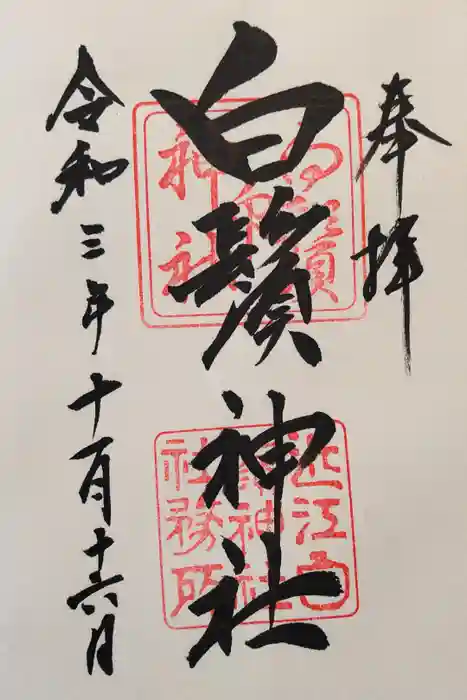 奉拝
白鬚神社
令和三年十月十六日
白鬚
神社
近江白
鬚神社
社務所